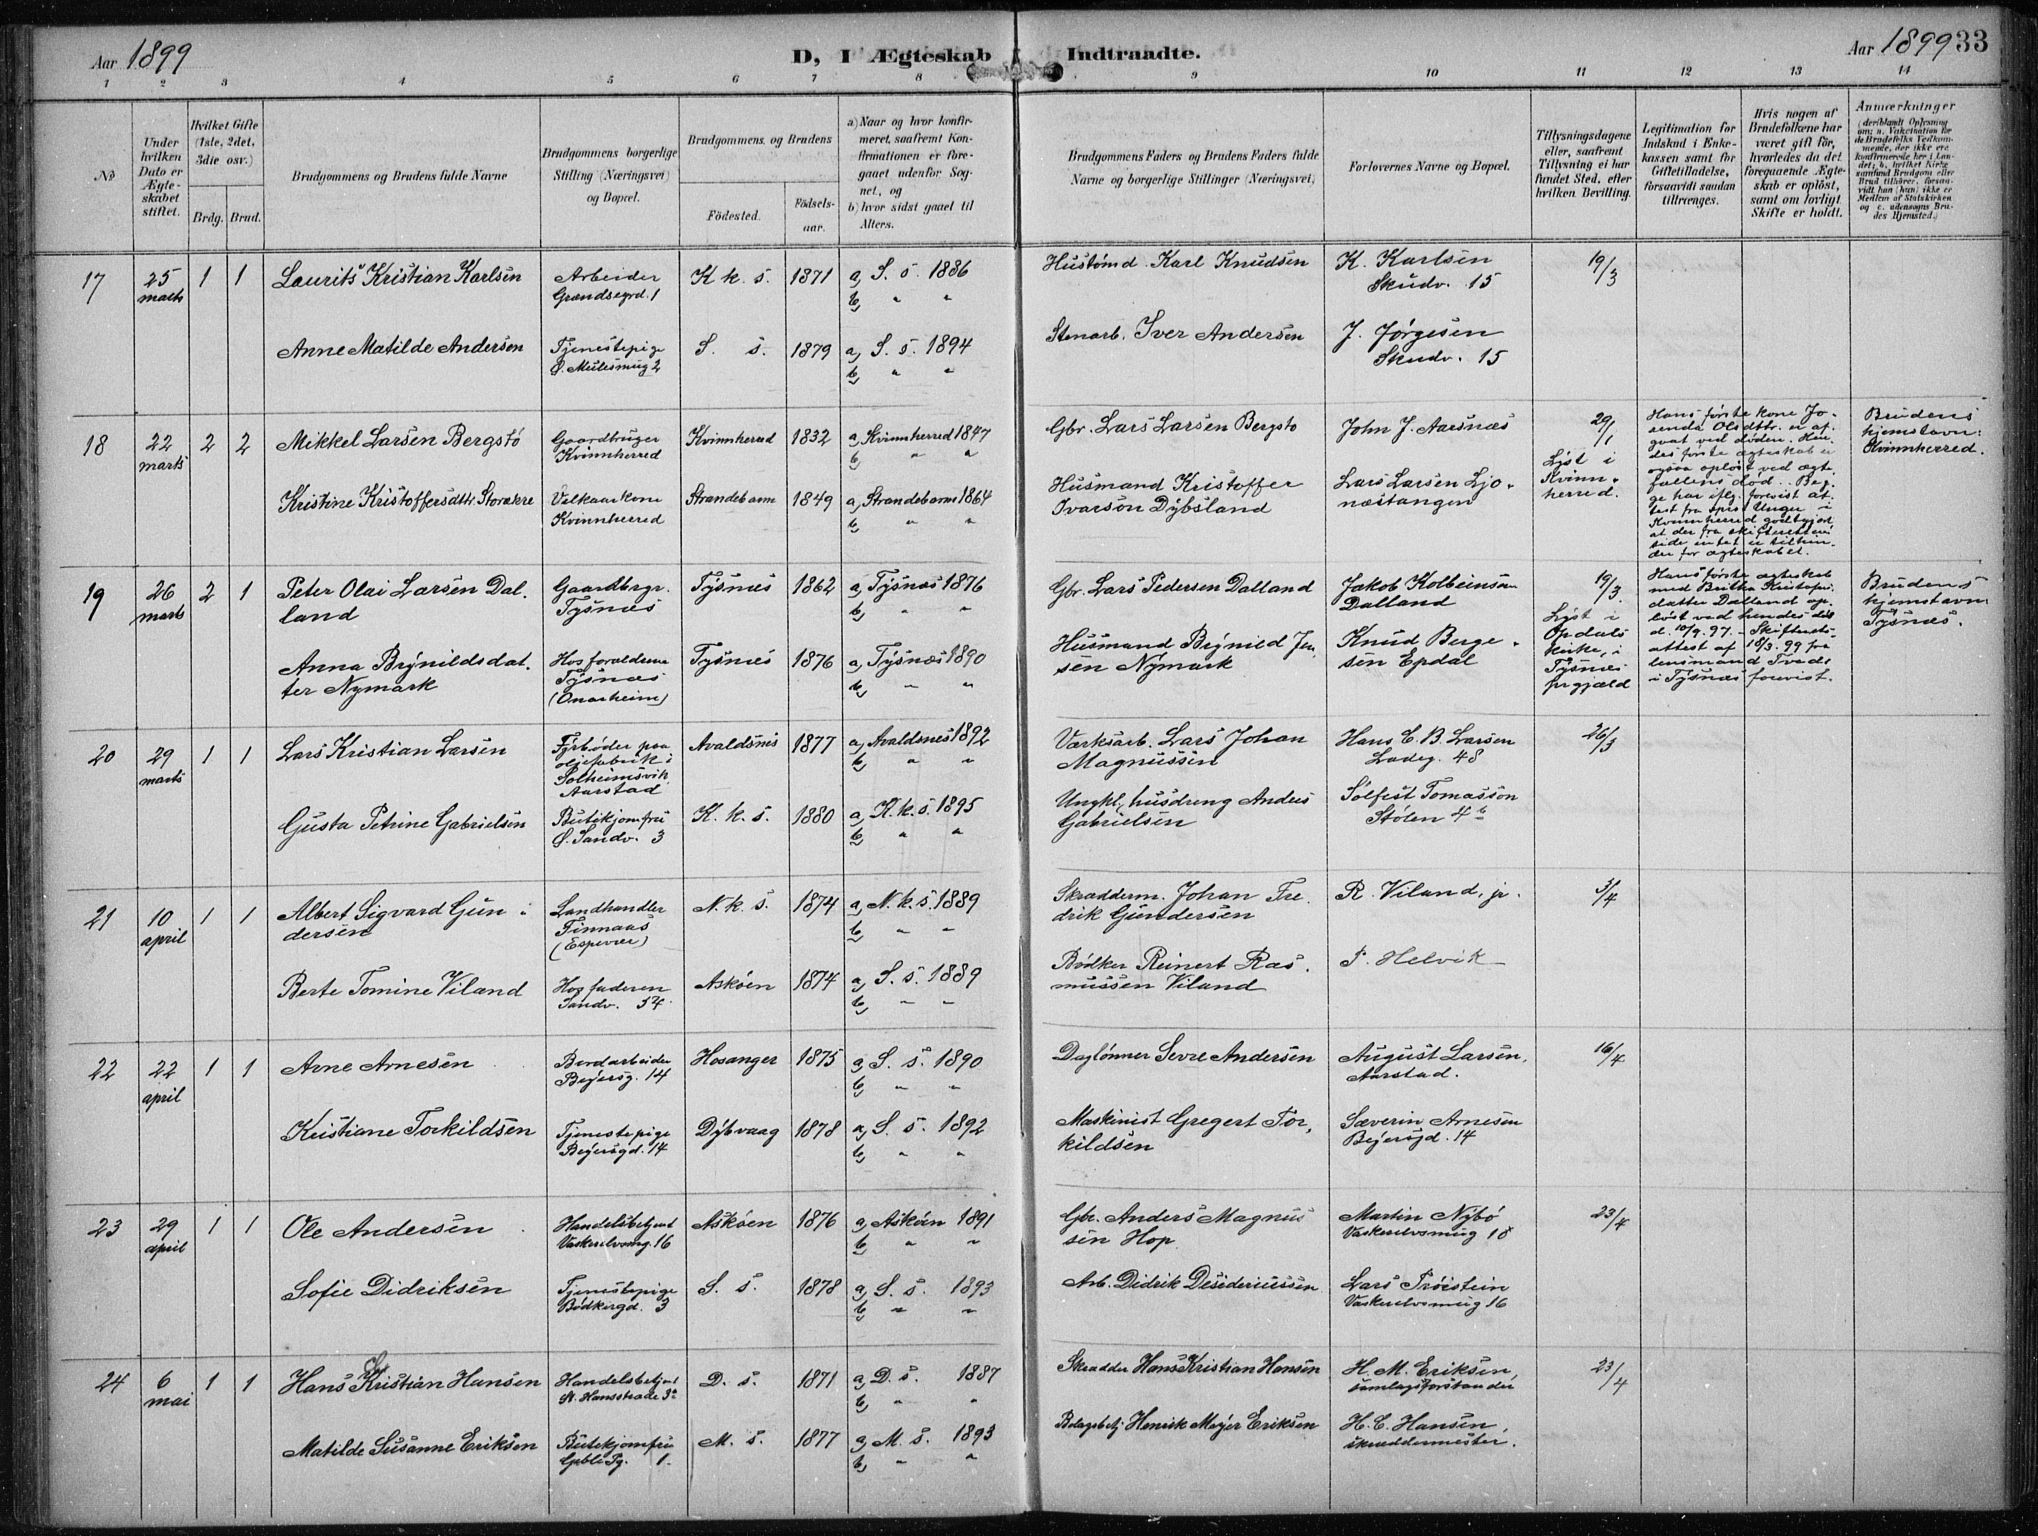 Aar 1899
D, I Ægteskab Indtraadte.
Aar 1899 33
1 2 3 4 5 6 7 8 9 10 11 12 13 14
No
Under hvilken Dato er Ægteskabet stiftet.
Hvilket Gifte (1ste, 2det, 3die osv.)
Brdg. Brud.
Brudgommens og Brudens fulde Navne
Brudgommens borgerlige Stilling (Næringsvei) og Bopæl.
Brudgommens og Brudens
Födested. Födselsaar.
a) Naar og hvor konfirmeret, saafremt Konfirmationen er foregaaet udenfor Sognet, og
b) hvor sidst gaaet til Alters.
Brudgommens Faders og Brudens Faders fulde Navne og borgerlige Stillinger (Næringsvei)
Forlovernes Navne og Bopæl.
Tillysningsdagene eller, saafremt Tillysning ei har fundet Sted, efter hvilken Bevilling.
Legitimation for Indskud i Enkekassen samt for Giftetilladelse, forsaavidt saadan tiltrænges.
Hvis nogen af Brudefolkene har været gift før, hvorledes da det foregaaende Ægteskab er oplöst, samt om lovligt Skifte er holdt.
Anmærkninger
17 25 marts 1 1 Laurits Kristian Karlsen Arbeider Grændsegrd. 1 K. k. s. 1871 a, S. s. 1886 b, " " Hustømd. Karl Knudsen K. Karlsen Skudv. 15 19/3
Anne Matilde Andersen Tjenestepige Ø. Mulesmug 2 S. s. 1879 a, S. s. 1894 b, " " Stenarb. Iver Andersen J. Jørgesen Skudv. 15
18 22 marts 2 2 Mikkel Larsen Bergstø Gaardbruger Kvinnherred Kvinnherred 1832 a, Kvinnherred 1847 b, " " Gbr. Lars Larsen Bergstø John J. Aarsnæs 29/1 Lyst i Kvinnherred.
Kristine Kristoffersdttr. Storækre Velkaarkone Kvinnherred Strandebarm 1849 a, Strandebarm 1864 b, " " Husmand Kristoffer Ivarson Dybsland Lars Larsen Ljonæstangen
Hans første kone Josenda Olsdttr. er afgaat ved døden. Hendes første ægteskab er ogsaa opløst ved ægtefællens død. Begge har iflg. forevist attest fra spr. Unger i Kvinnherred godtgjort at der fra skifterettens side intet er tilhinder for ægteskabet.
Brudens hjemstavn: Kvinnherred.
19 26 marts 2 1 Peter Olai Larsen Dalland Gaardbrgr. Tysnæs Tysnæs 1862 a, Tysnæs 1876 b, " " Gbr. Lars Pedersen Dalland Jakob Kolbeinsen Dalland 19/3 Lyst i Opdals kirke, i Tysnæs prgjæld
Anna Brynildsdatter Nymark Hos forældrene Tysnæs (Onarheim) Tysnæs 1876 a, Tysnæs 1890 b, " " Husmand Brynild Jensen Nymark Knud Bergesen Epdal
Hans første ægteskab med Britha Kristoferdatter Dalland opløst ved hendes død d. 10/9. 97. Skifteretsattest af 18/3. 99 fra lensmand Tvedt i Tysnæs forevist.
Brudens hjemstavn Tysnæs.
20 29 marts 1 1 Lars Kristian Larsen Fyrbøder paa oljefabrik i Solheimsvik Aarstad Avaldsnes 1877 a, Avaldsnes 1892 b, " " Værksarb. Lars Johan Magnussen Hans C. B. Larsen Ladeg. 48 26/3
Gusta Petrine Gabrielsen Butikjomfru Ø. Sandv. 3 K. k. s. 1880 a, K. k. s. 1895 b, " " Ungkl., husdreng Anders Gabrielsen Sølfest Tomasson Stølen 4 b
21 10 april 1 1 Albert Sigvard Gundersen Landhandler Finnaas (Espevær) N. k. s. 1874 a, N. k. s. 1889 b, " " Skrædderm. Johan Fredrik Gundersen R. Viland, jr. 3/4
Berte Tomine Viland Hos faderen Sandv. 54. Askøen 1874 a, S. s. 1889 b, " " Bødker Reinert Rasmussen Viland P. Helvik
22 22 april 1 1 Arne Arnesen Bordarbeider Beyersg. 14 Hosanger 1875 a, S. s. 1890 b, " " Daglønner Sevre Andersen August Larsen, Aarstad. 16/4
Kristiane Torkildsen Tjenestepige Beyersgd. 14 Dybvaag 1878 a, S. s. 1892 b, " " Maskinist Gregert Torkildsen Sæverin Arnesen Beyersgd. 14
23 29 april 1 1 Ole Andersen Handelsbetjent Vaskerelvsmug. 16 Askøen 1876 a, Askøen 1891 b, " " Gbr. Anders Magnussen Hop Martin Nybø Vaskerelvsmug 18 23/4
Sofie Didriksen Tjenestepige Bødkergd. 3 S. s. 1878 a, S. s. 1893 b, " " Arb. Didrik Desideriussen Lars Trøistein Vaskerelvsmug 16
24 6 mai 1 1 Hans Kristian Hansen Handelsbetjent St. Hansstræde 3a D. s. 1871 a, D. s. 1887 b, " Skrædder Hans Kristian Hansen H. M. Eriksen, samlagsforstander 23/4
Matilde Susanne Eriksen Butikjomfru 1. M. s. 1877 a, M. s. 1893 b, " " Henrik Meyer Eriksen H. C. Hansen, skræddermester.